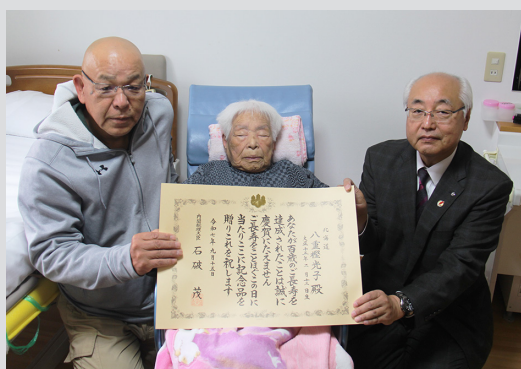 北海道
八重樫光子 殿
あなたが百歳のご長寿を
達成されたことは誠に
慶賀にたえません
ご長寿をことほぐこの日に
当たりここに記念品を
贈りこれを祝します
令和七年九月十五日
内閣総理大臣 石破 茂